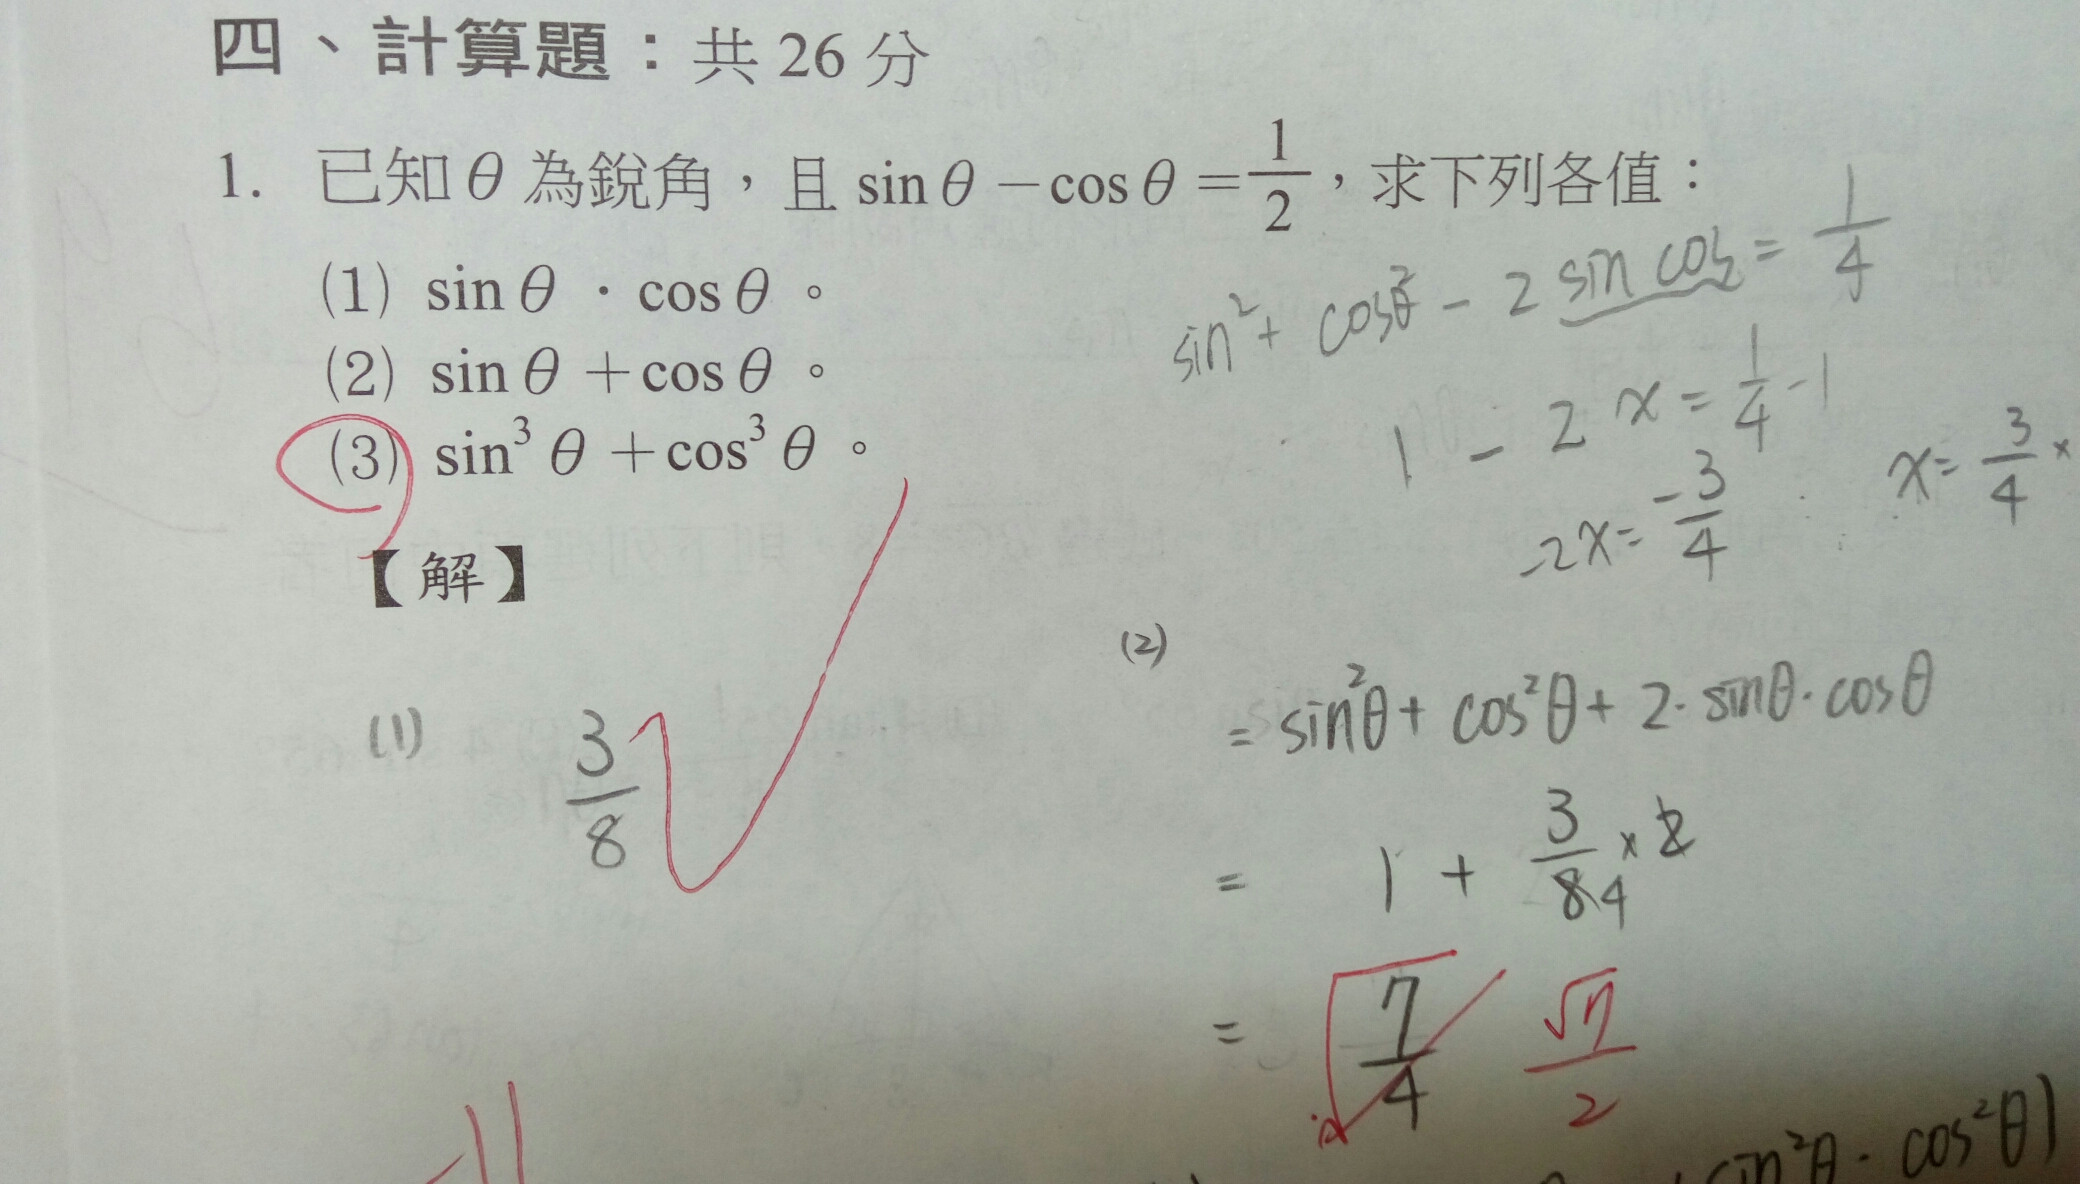 四、計算題：共 26 分
1. 已知 θ 為銳角，且 sin θ − cos θ = 1/2，求下列各值：
(1) sin θ · cos θ。
(2) sin θ + cos θ。
(3) sin³ θ + cos³ θ。
sin² + cosθ² − 2 sin cos = 1/4
1 − 2x = 1/4 − 1
−2x = −3/4
x = 3/4 ×
【解】
(1) 3/8
(2)
= sin²θ + cos²θ + 2 · sinθ · cosθ
= 1 + 3/8 4 × 2
= √7/4 √7/2
sin²θ · cos²θ)